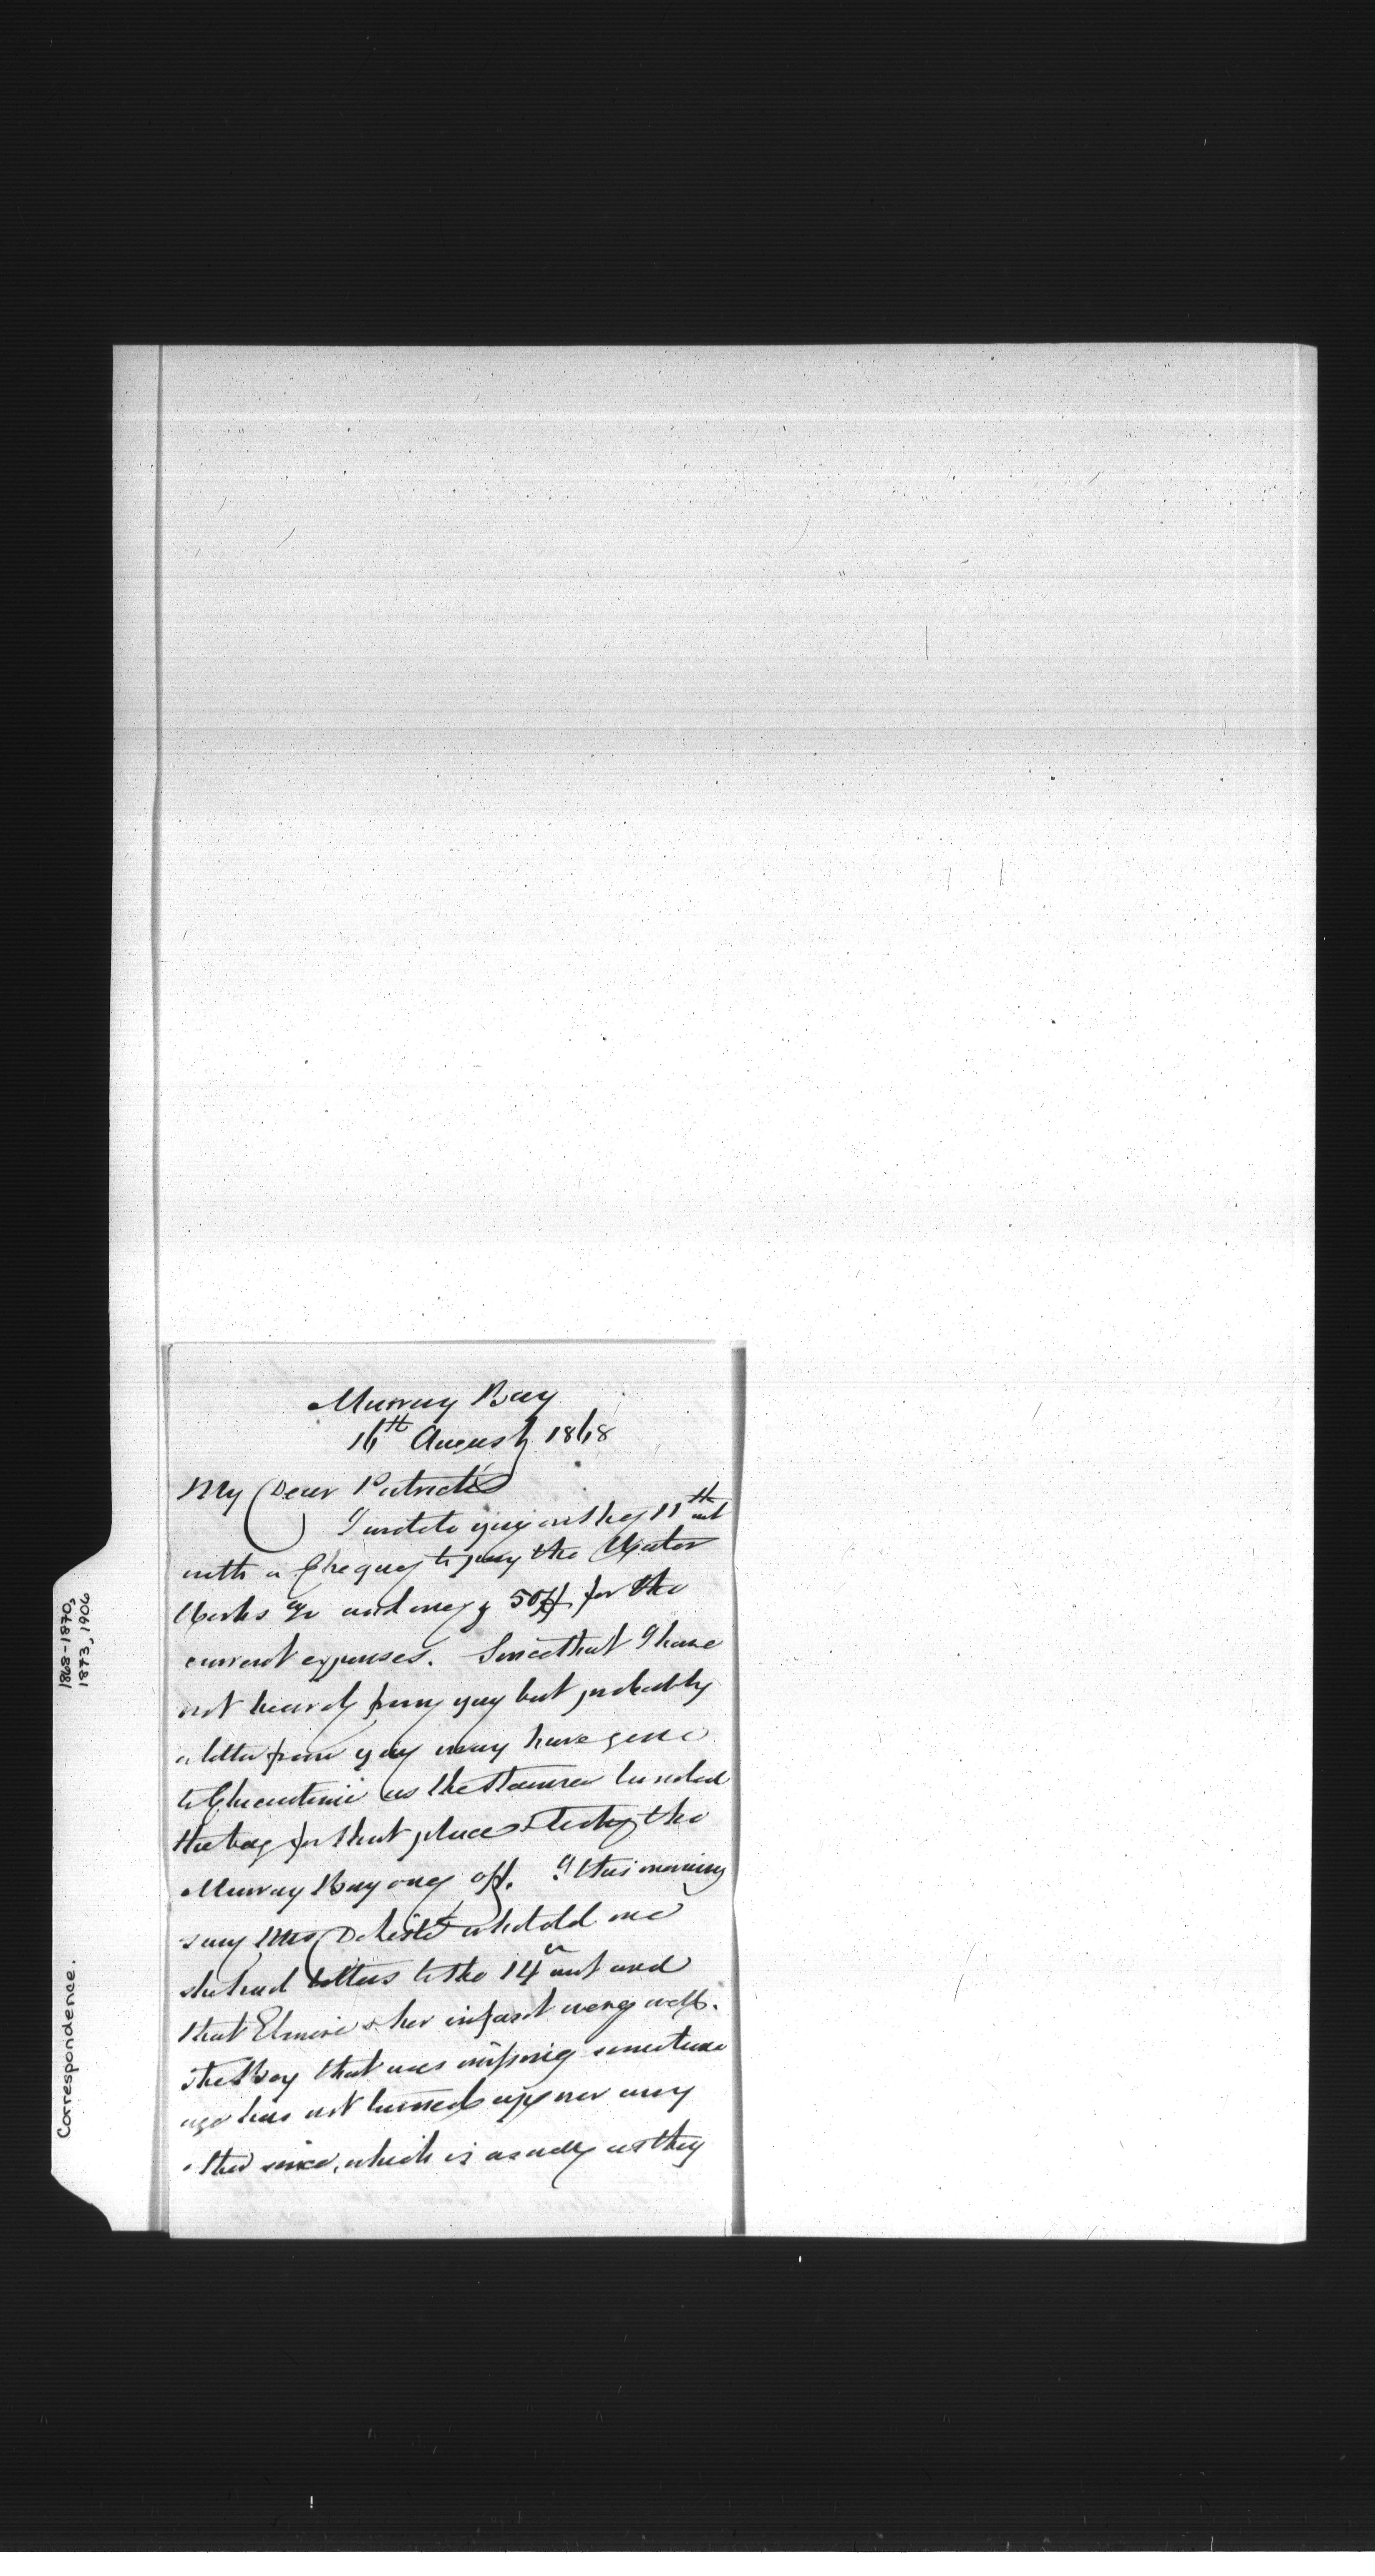 Murray Bay
16th August 1868
My Dear Patrick
I wrote to you on the 11th inst
with a Cheque to pay the Water
Works &c and one of 50$ for the
current expenses. Since that I have
not heard from you but probably
a letter from you may have gone
to Chicoutimi as the steamer landed
the bag for that place &
Murray Bay one off. I this morning
saw Mrs Delisle who told me
she had letters to the 14th inst and
that Elmire & her infant were well.
The Boy that was missing sometime
ago has not turned up nor any
other since, which is as well as they
Correspondence.
1868-1870,
1873, 1906